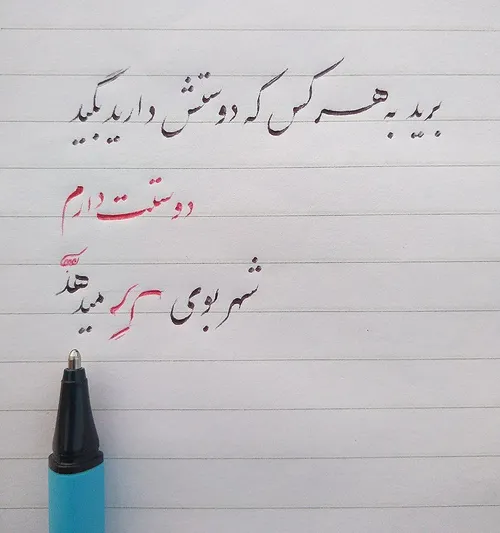 برید به هر کس که دوستش دارید بگید
دوستت دارم
شهر بوی مرگ میدهد